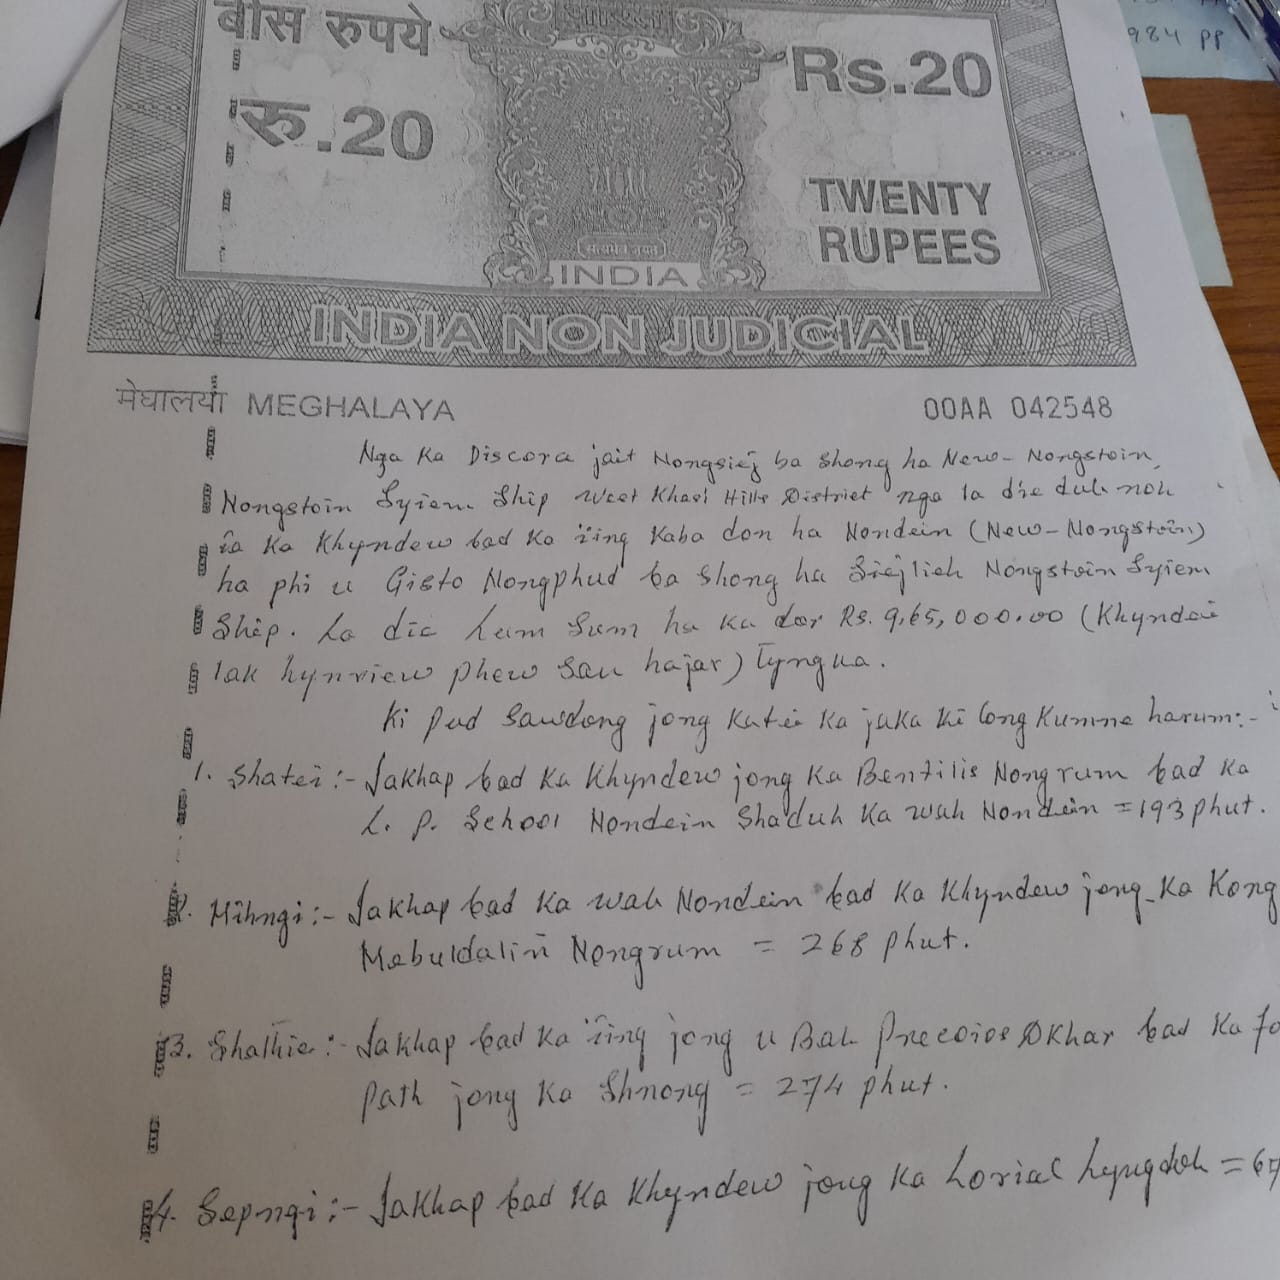 बीस रुपये
रु.20
Rs.20
TWENTY
RUPEES
सत्यमेव जयते
INDIA
INDIA NON JUDICIAL
मेघालय MEGHALAYA
00AA 042548
984 PP
Nga Ka Discora jait Nongsiej ba shong ha New-Nongstoin,
Nongstoin Syiem Ship West Khasi Hills District nga la die duh noh
ia Ka Khyndew bad Ka ïing Kaba don ha Nondein (New-Nongstoin)
ha phi u Gisto Nongphud ba shong ha Siejlieh Nongstoin Syiem
Ship. La die lum sum ha ka dor Rs. 9,65,000.00 (Khyndai
lak hynriew phew san hajar) Tyngka.
Ki pud sawdong jong Katei Ka jaka ki long Kumne harum:-
1. Shatei :- Jakhap bad Ka Khyndew jong Ka Bentilis Nongrum bad Ka
L. P. School Nondein Shaduh Ka wah Nondein = 193 phut.
2. Mihngi :- Jakhap bad Ka wah Nondein bad Ka Khyndew jong Ka Kong
Mebuldalin Nongrum = 268 phut.
3. Shathie :- Jakhap bad Ka ïing jong u Bah Precoios Dkhar bad Ka fo
path jong Ka Shnong = 274 phut.
4. Sepngi :- Jakhap bad Ka Khyndew jong Ka Lorial Lyngdoh =